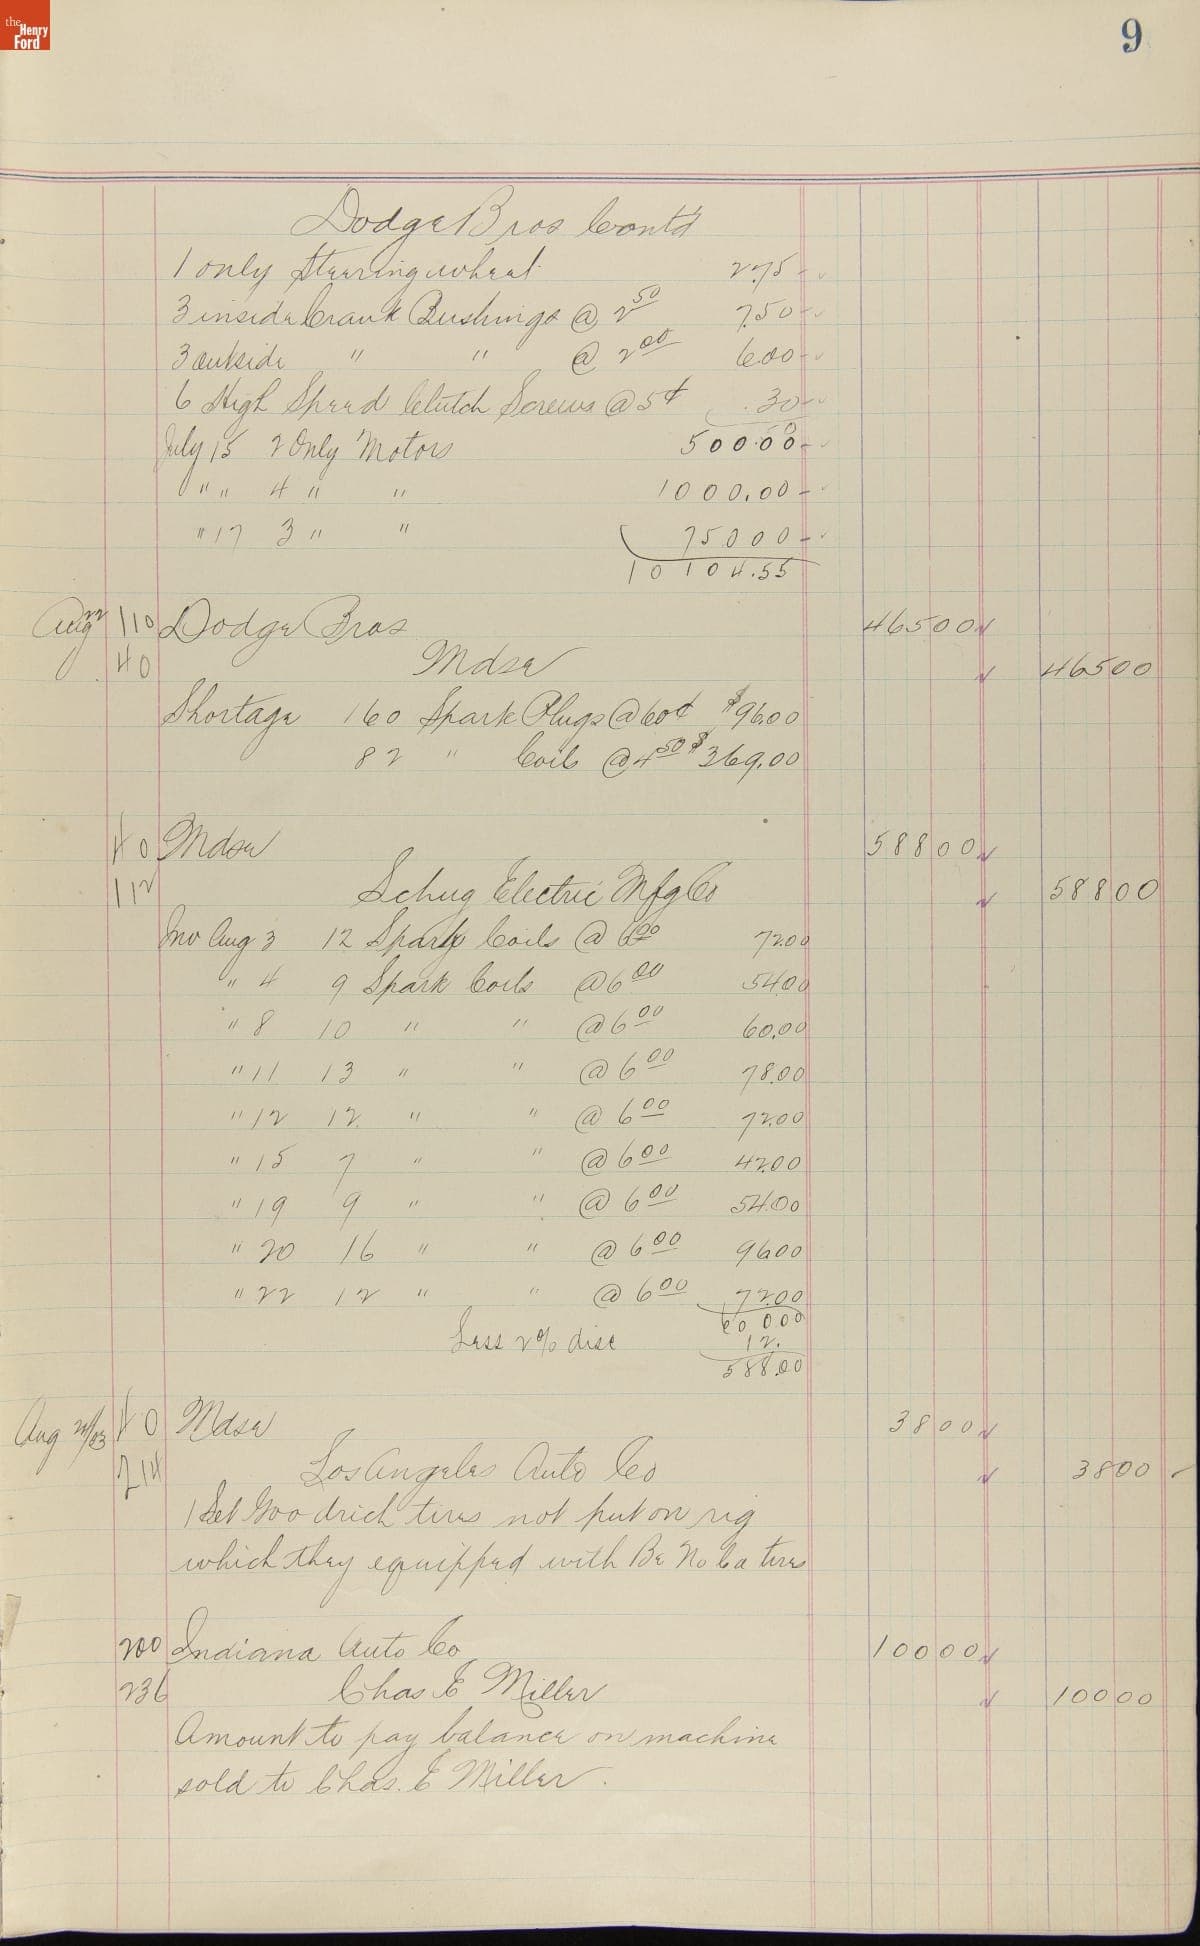 the Henry Ford
9
Dodge Bros Cont'd
1 only Steering wheel 2.75
3 inside Crank Bushings @ 2 50 7.50
3 outside " " @ 2 00 6.00
6 High Speed Clutch Screws @ 5¢ .30
July 15 2 Only Motors 500.00
" " 4 " " 1000.00
" 17 3 " " 750 00
10 104.55
Aug 22 110 Dodge Bros 465 00
40 Mdse 465 00
Shortage 160 Spark Plugs @ 60¢ $96.00
82 " Coils @ 4 50 $369.00
40 Mdse 588 00
112 Schug Electric Mfg Co 588 00
Inv Aug 3 12 Spark Coils @ 6 00 72.00
" 4 9 Spark Coils @ 6 00 54.00
" 8 10 " " @ 6 00 60.00
" 11 13 " " @ 6 00 78.00
" 12 12 " " @ 6 00 72.00
" 15 7 " " @ 6 00 42.00
" 19 9 " " @ 6 00 54.00
" 20 16 " " @ 6 00 96.00
" 22 12 " " @ 6 00 72.00
600.00
Less 2% disc 12.
588.00
Aug 40 Mdse 38 00
214 Los Angeles Auto Co 38 00
1 Set Goodrich tires not put on rig
which they equipped with Be No Ca tires
200 Indiana Auto Co 100 00
236 Chas E Miller 100 00
Amount to pay balance on machine
sold to Chas. E Miller.